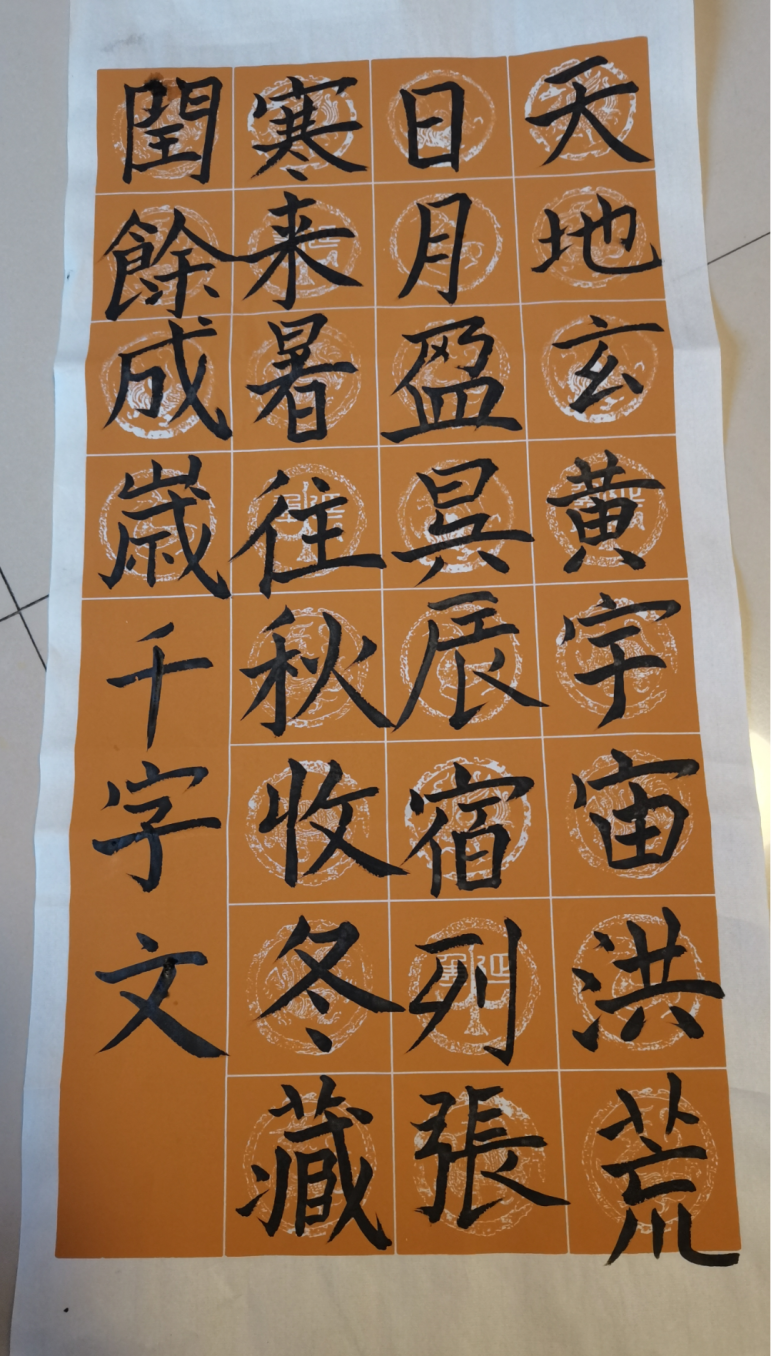 天地玄黄宇宙洪荒
日月盈昃辰宿列張
寒来暑往秋收冬藏
閏餘成歲千字文